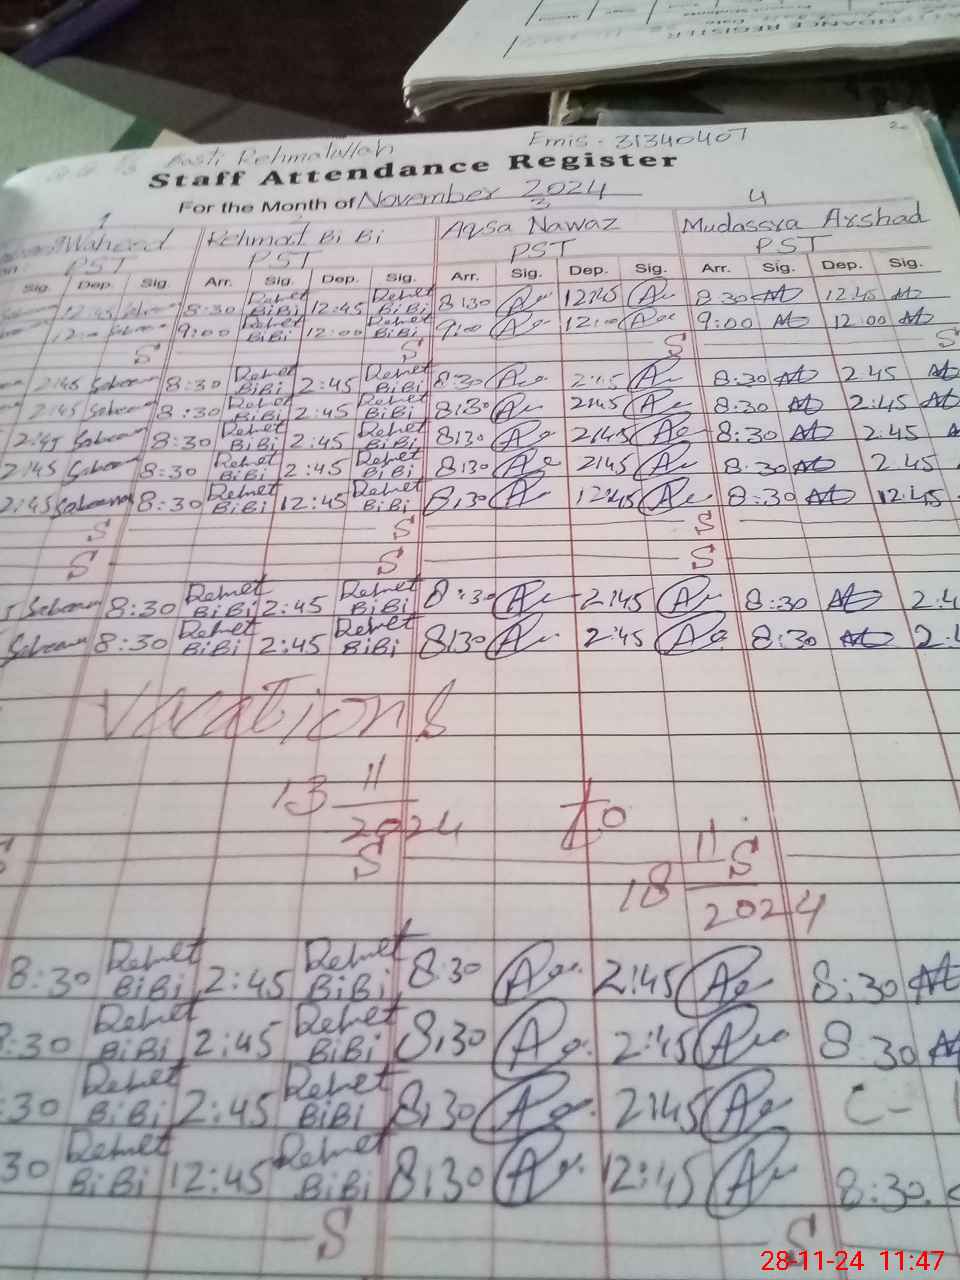 ATTENDANCE REGISTER
Basti Rehmatullah Emis - 31340407
Staff Attendance Register
For the Month of November 2024
1 3 4
Waheed Rehmat Bi Bi Aqsa Nawaz Mudassra Arshad
PST PST PST PST
Sig. Dep. Sig. Arr. Sig. Dep. Sig. Arr. Sig. Dep. Sig. Arr. Sig. Dep. Sig.
12:45 8:30 Rehmet BiBi 12:45 Rehmet BiBi 8:30 12:45 8:30 12:45
12:00 9:00 Rehmet BiBi 12:00 Rehmet BiBi 9:00 12:00 9:00 12:00
S S S S
2:45 8:30 Rehmet BiBi 2:45 Rehmet BiBi 8:30 2:45 8:30 2:45
2:45 8:30 Rehmet BiBi 2:45 Rehmet BiBi 8:30 2:45 8:30 2:45
2:45 8:30 Rehmet BiBi 2:45 Rehmet BiBi 8:30 2:45 8:30 2:45
2:45 8:30 Rehmet BiBi 2:45 Rehmet BiBi 8:30 2:45 8:30 2:45
2:45 8:30 Rehmet BiBi 12:45 Rehmet BiBi 8:30 12:45 8:30 12:45
S S S
S S S
8:30 Rehmet BiBi 2:45 Rehmet BiBi 8:30 2:45 8:30
8:30 Rehmet BiBi 2:45 Rehmet BiBi 8:30 2:45 8:30
Vacations
13 11 2024 to 18 11 2024
S S
8:30 Rehmet BiBi 2:45 Rehmet BiBi 8:30 2:45 8:30
8:30 Rehmet BiBi 2:45 Rehmet BiBi 8:30 2:45 8:30
:30 Rehmet BiBi 2:45 Rehmet BiBi 8:30 2:45 C-
30 Rehmet BiBi 12:45 Rehmet BiBi 8:30 12:45 8:30
S S
28-11-24 11:47